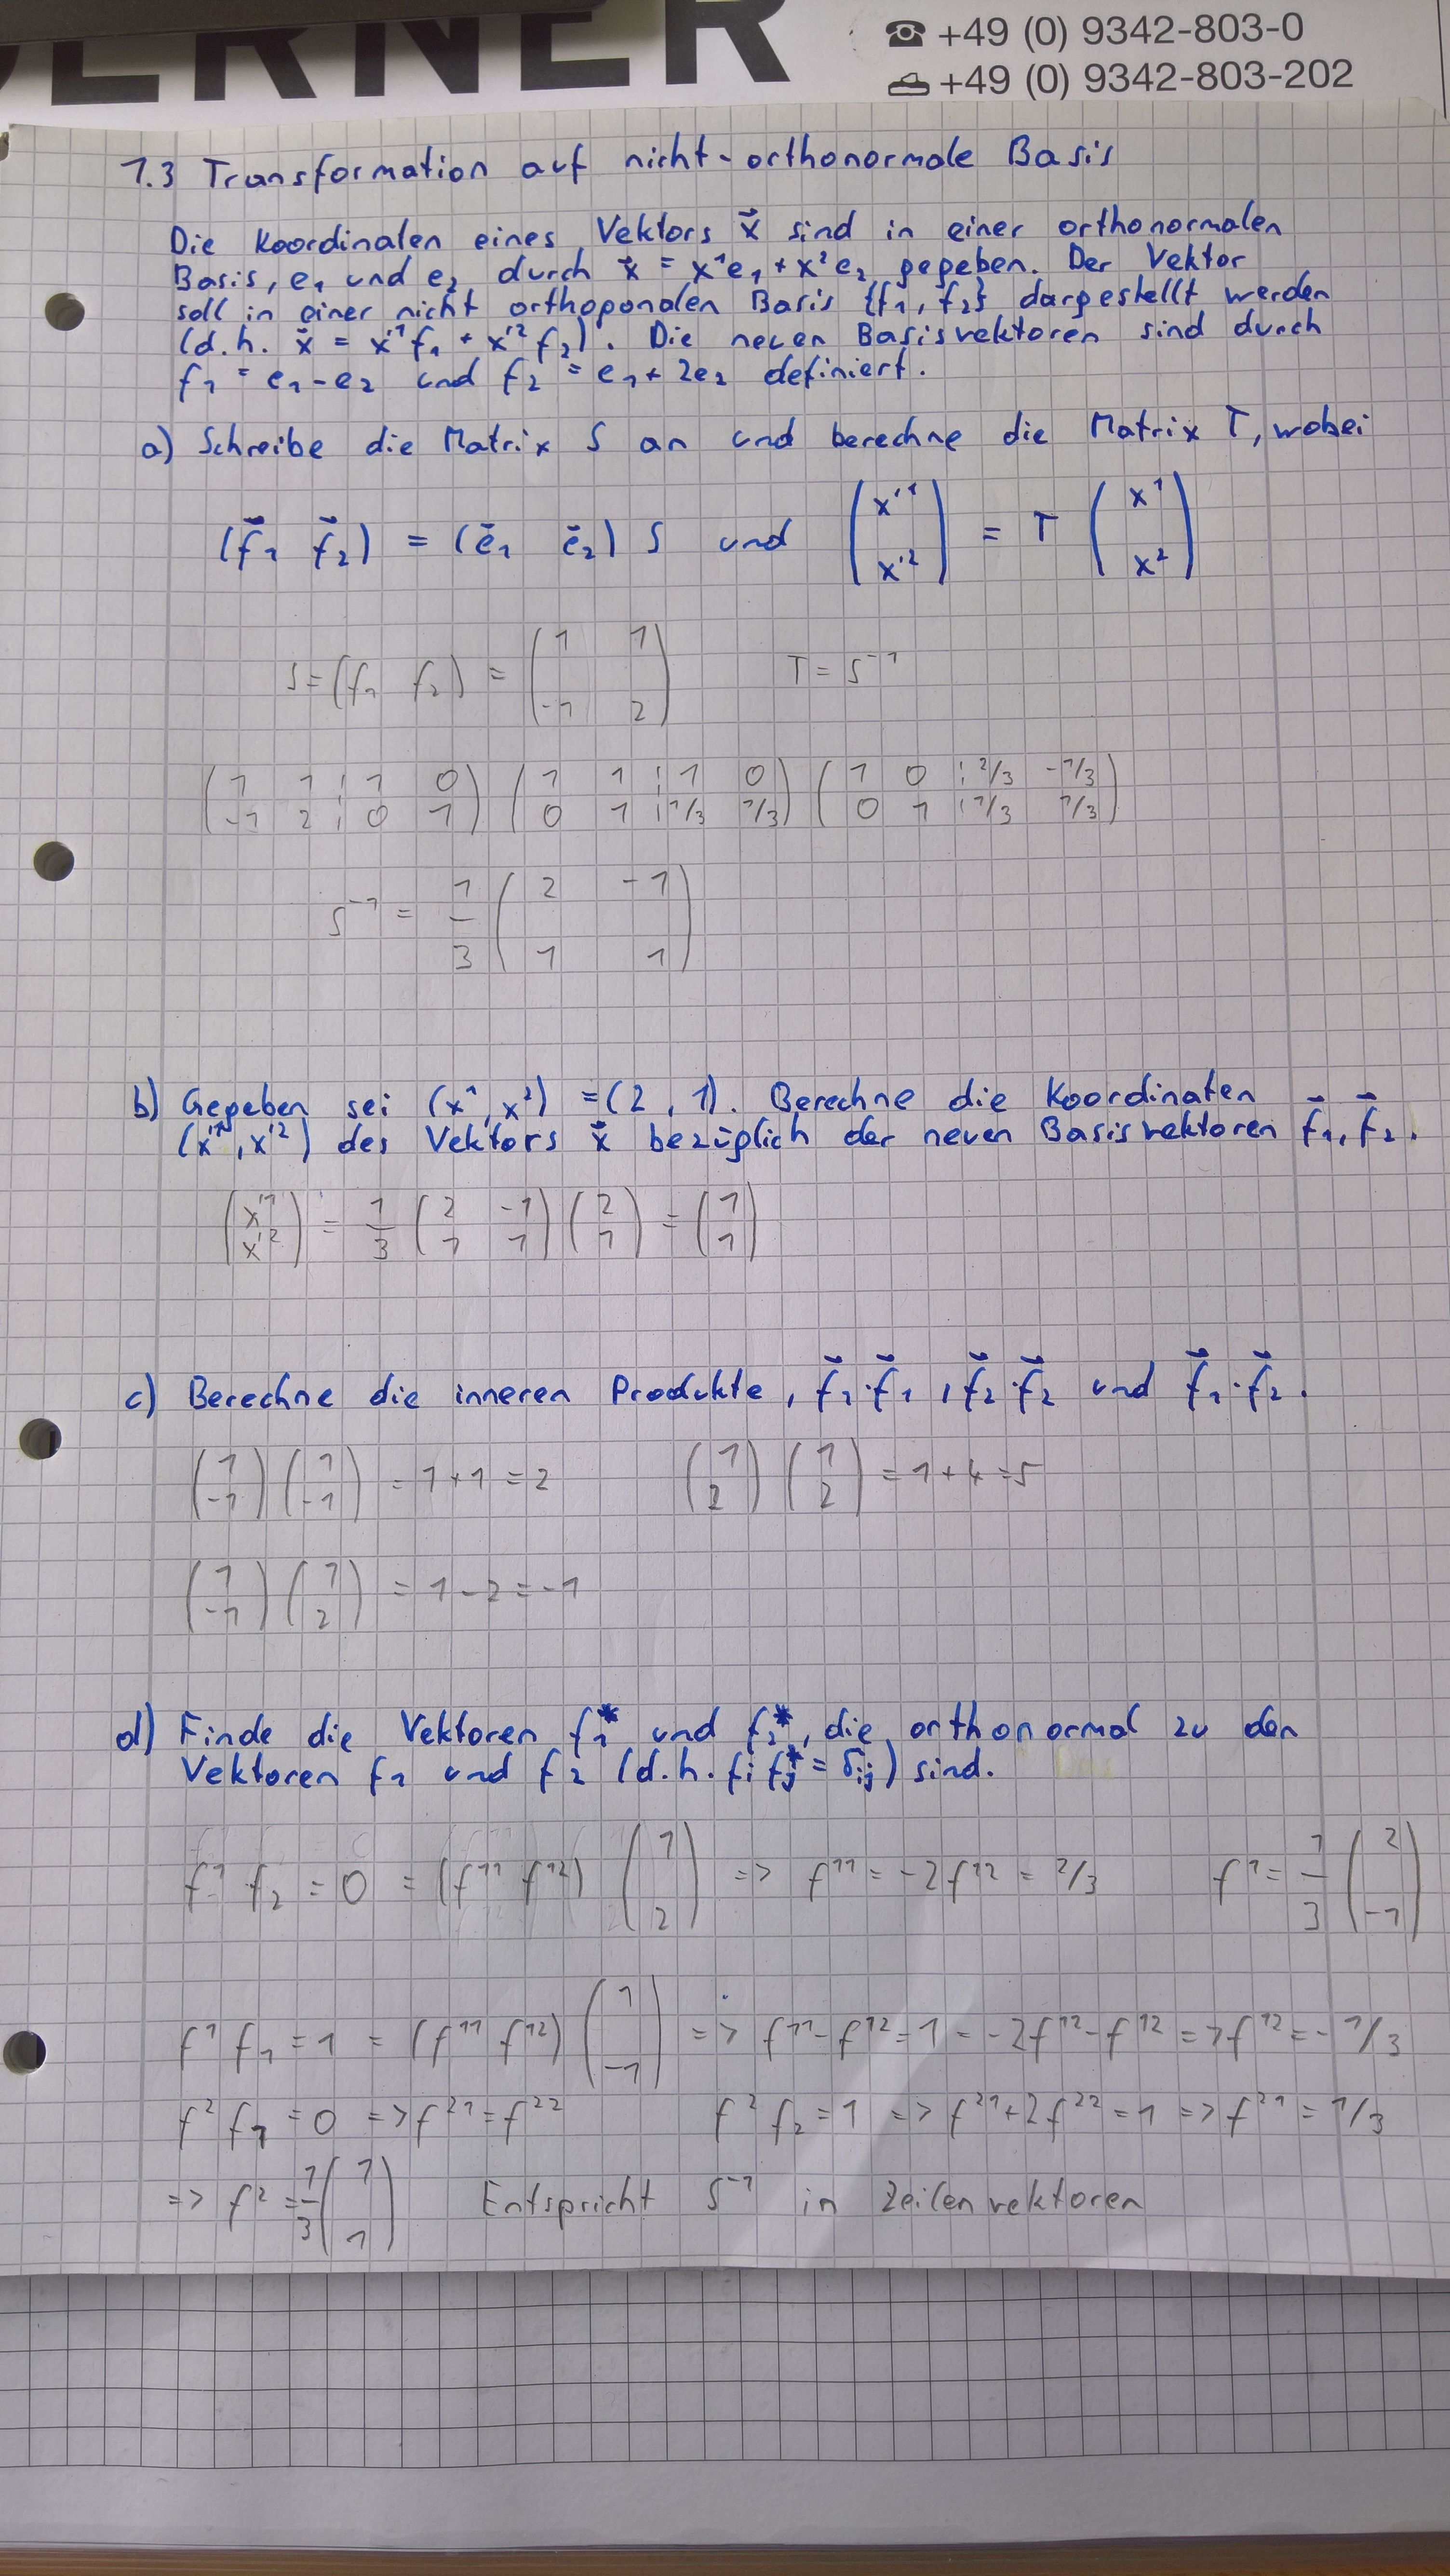 ERNER
☎ +49 (0) 9342-803-0
+49 (0) 9342-803-202
1.3 Transformation auf nicht-orthonormale Basis
Die Koordinaten eines Vektors x⃗ sind in einer orthonormalen
Basis, e₁ und e₂ durch x⃗ = x¹e₁ + x²e₂ gegeben. Der Vektor
soll in einer nicht orthogonalen Basis {f₁, f₂} dargestellt werden
(d.h. x⃗ = x'¹f₁ + x'²f₂). Die neuen Basisvektoren sind durch
f₁ = e₁-e₂ und f₂ = e₁+2e₂ definiert.
a) Schreibe die Matrix S an und berechne die Matrix T, wobei
(f⃗₁ f⃗₂) = (e⃗₁ e⃗₂) S und (x'¹ x'²) = T (x¹ x²)
S = (f₁ f₂) = (1 1 -1 2) T = S⁻¹
(1 1 ¦ 1 0) (1 1 ¦ 1 0) (1 0 ¦ 2/3 -1/3)
(-1 2 ¦ 0 1) (0 1 ¦ 1/3 1/3) (0 1 ¦ 1/3 1/3)
S⁻¹ = 1/3 (2 -1 1 1)
b) Gegeben sei (x¹, x²) = (2, 1). Berechne die Koordinaten
(x'¹, x'²) des Vektors x⃗ bezüglich der neuen Basisvektoren f⃗₁, f⃗₂.
(x'¹ x'²) = 1/3 (2 -1 1 1) (2 1) = (1 1)
c) Berechne die inneren Produkte, f⃗₁·f⃗₁, f⃗₂·f⃗₂ und f⃗₁·f⃗₂.
(1 -1) (1 -1) = 1+1 = 2 (1 2) (1 2) = 1+4 = 5
(1 -1) (1 2) = 1-2 = -1
d) Finde die Vektoren f₁* und f₂*, die orthonormal zu den
Vektoren f₁ und f₂ (d.h. fᵢ fⱼ* = δᵢⱼ) sind.
f¹ f₂ = 0 = (f¹¹ f¹²) (1 2) => f¹¹ = -2f¹² = 2/3 f¹ = 1/3 (2 -1)
f¹ f₁ = 1 = (f¹¹ f¹²) (1 -1) => f¹¹-f¹² = 1 = -2f¹²-f¹² => f¹² = -1/3
f² f₁ = 0 => f²¹ = f²² f² f₂ = 1 => f²¹+2f²² = 1 => f²¹ = 1/3
=> f² = 1/3 (1 1) Entspricht S⁻¹ in Zeilenvektoren